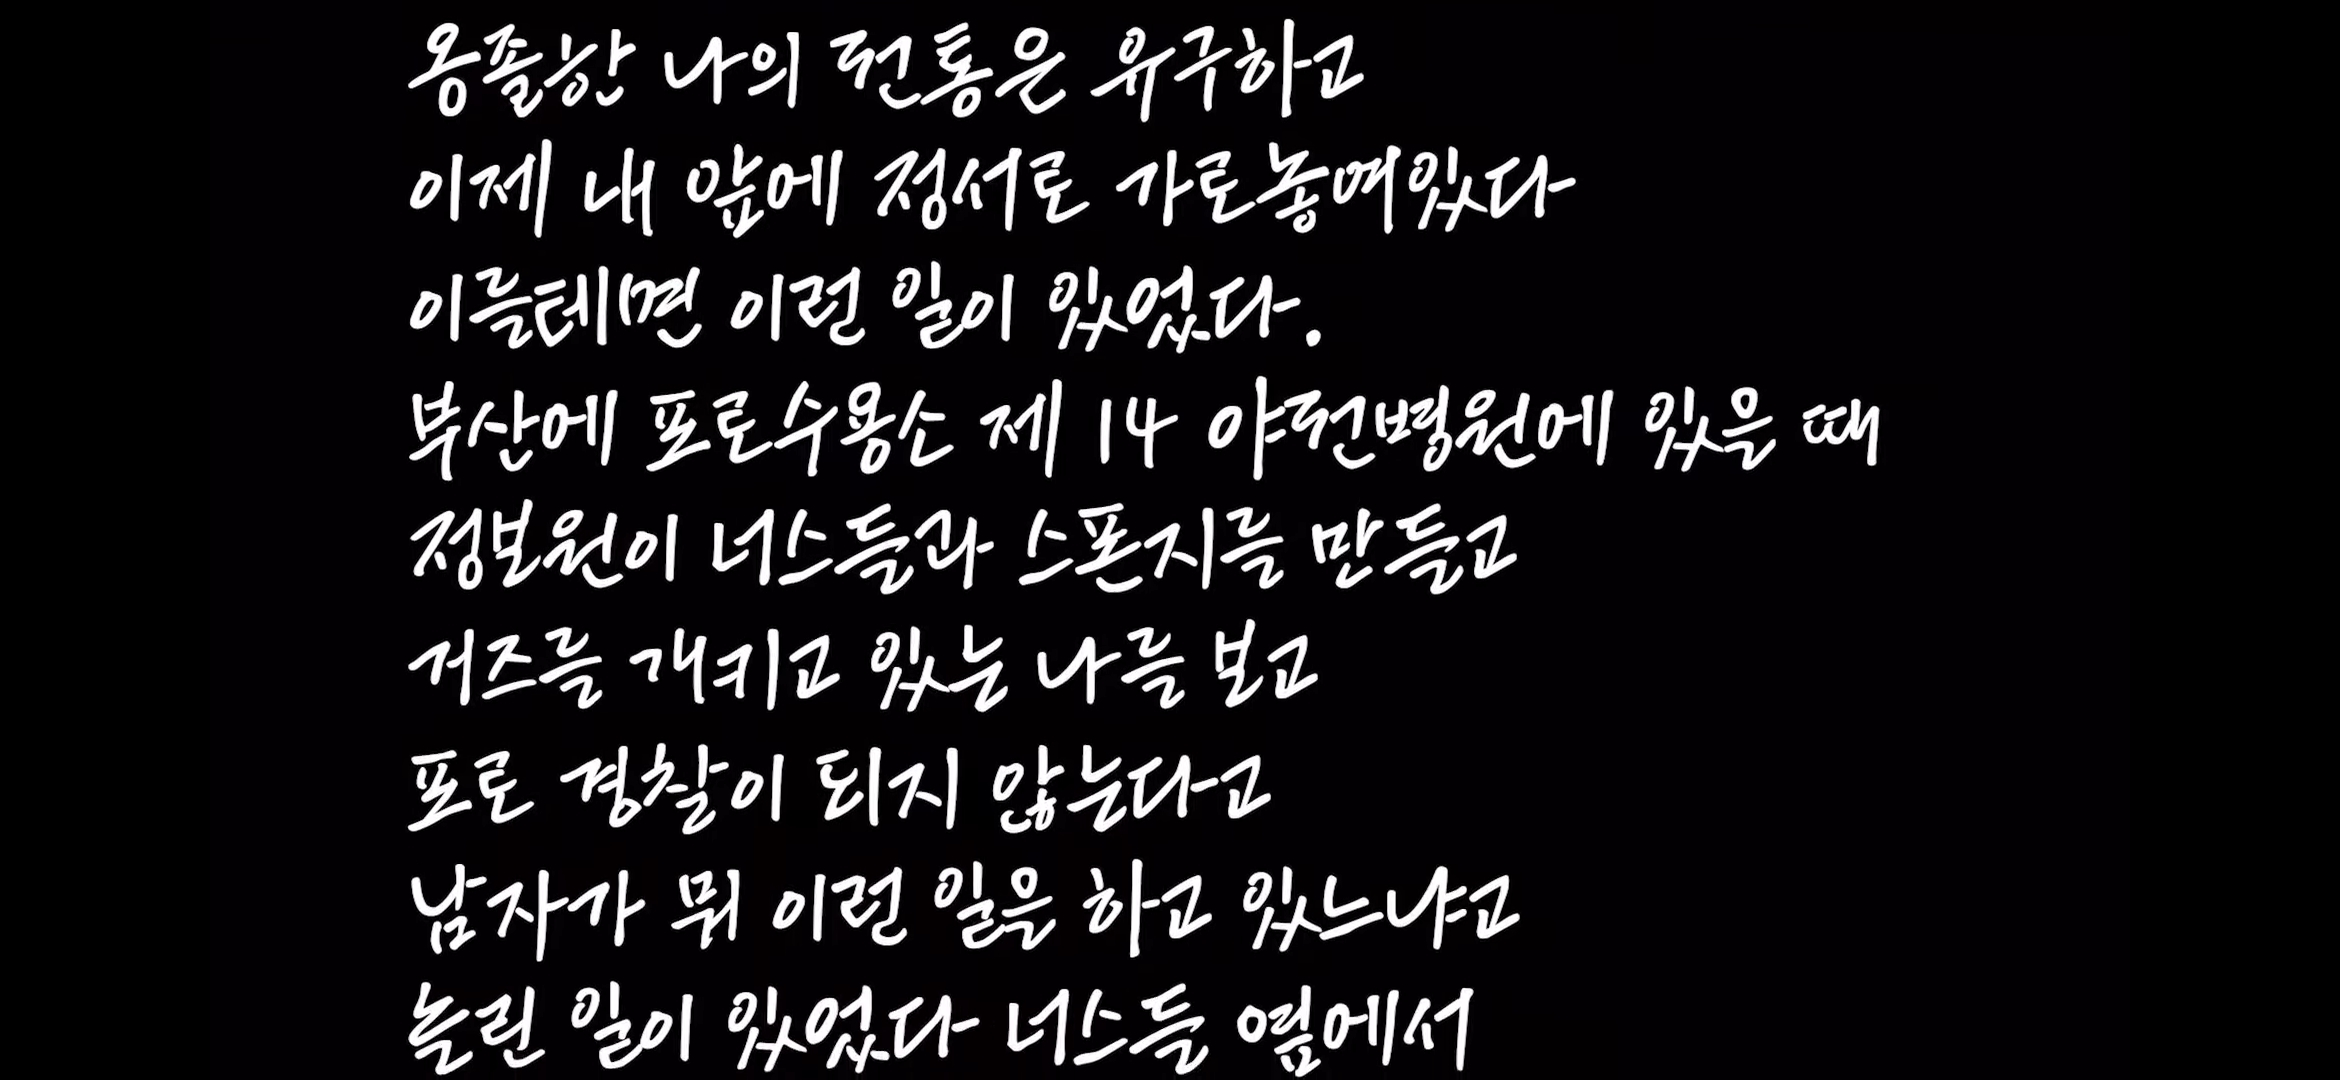 옹졸한 나의 전통은 유구하고
이제 내 앞에 정서로 가로놓여있다
이를테면 이런 일이 있었다.
부산에 포로수용소 제 14 야전병원에 있을 때
정보원이 너스들과 스폰지를 만들고
거즈를 개키고 있는 나를 보고
포로 경찰이 되지 않는다고
남자가 뭐 이런 일을 하고 있느냐고
놀린 일이 있었다 너스들 옆에서